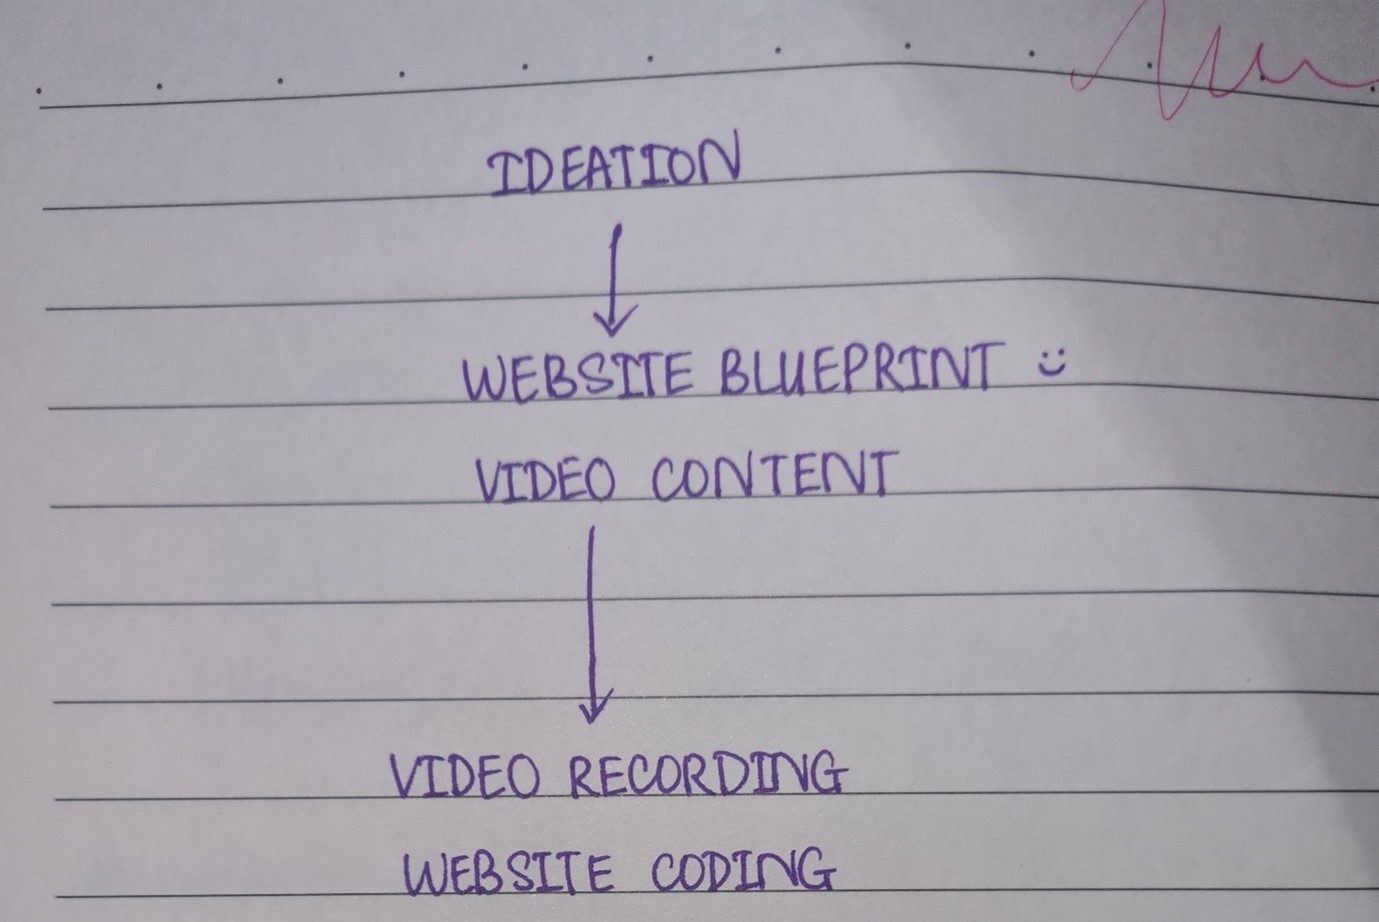 IDEATION
WEBSITE BLUEPRINT
VIDEO CONTENT
VIDEO RECORDING
WEBSITE CODING